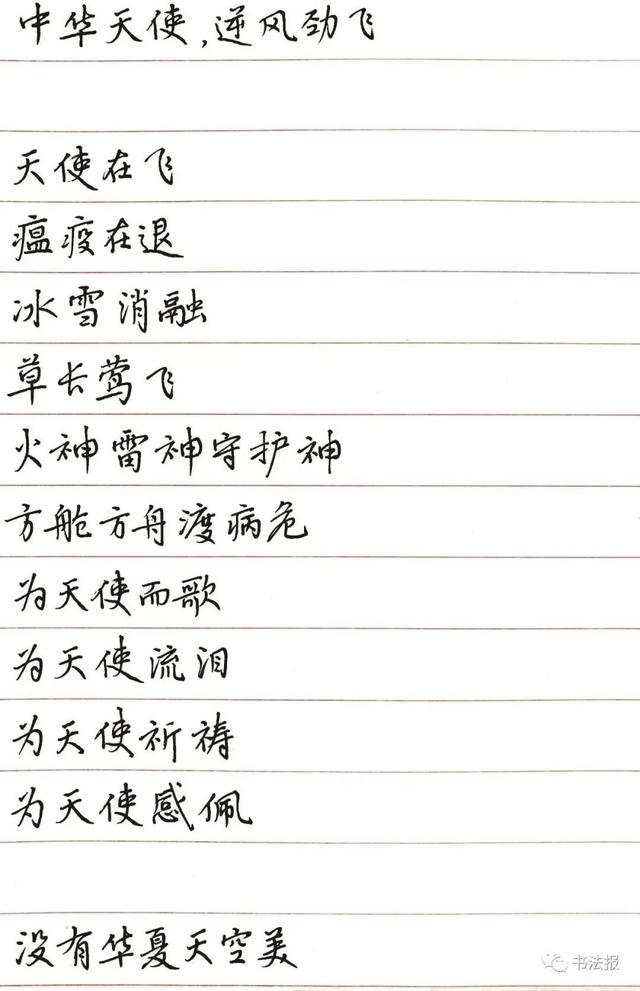 中华天使,逆风劲飞
天使在飞
瘟疫在退
冰雪消融
草长莺飞
火神雷神守护神
方舱方舟渡病危
为天使而歌
为天使流泪
为天使祈祷
为天使感佩
没有华夏天空美
书法报